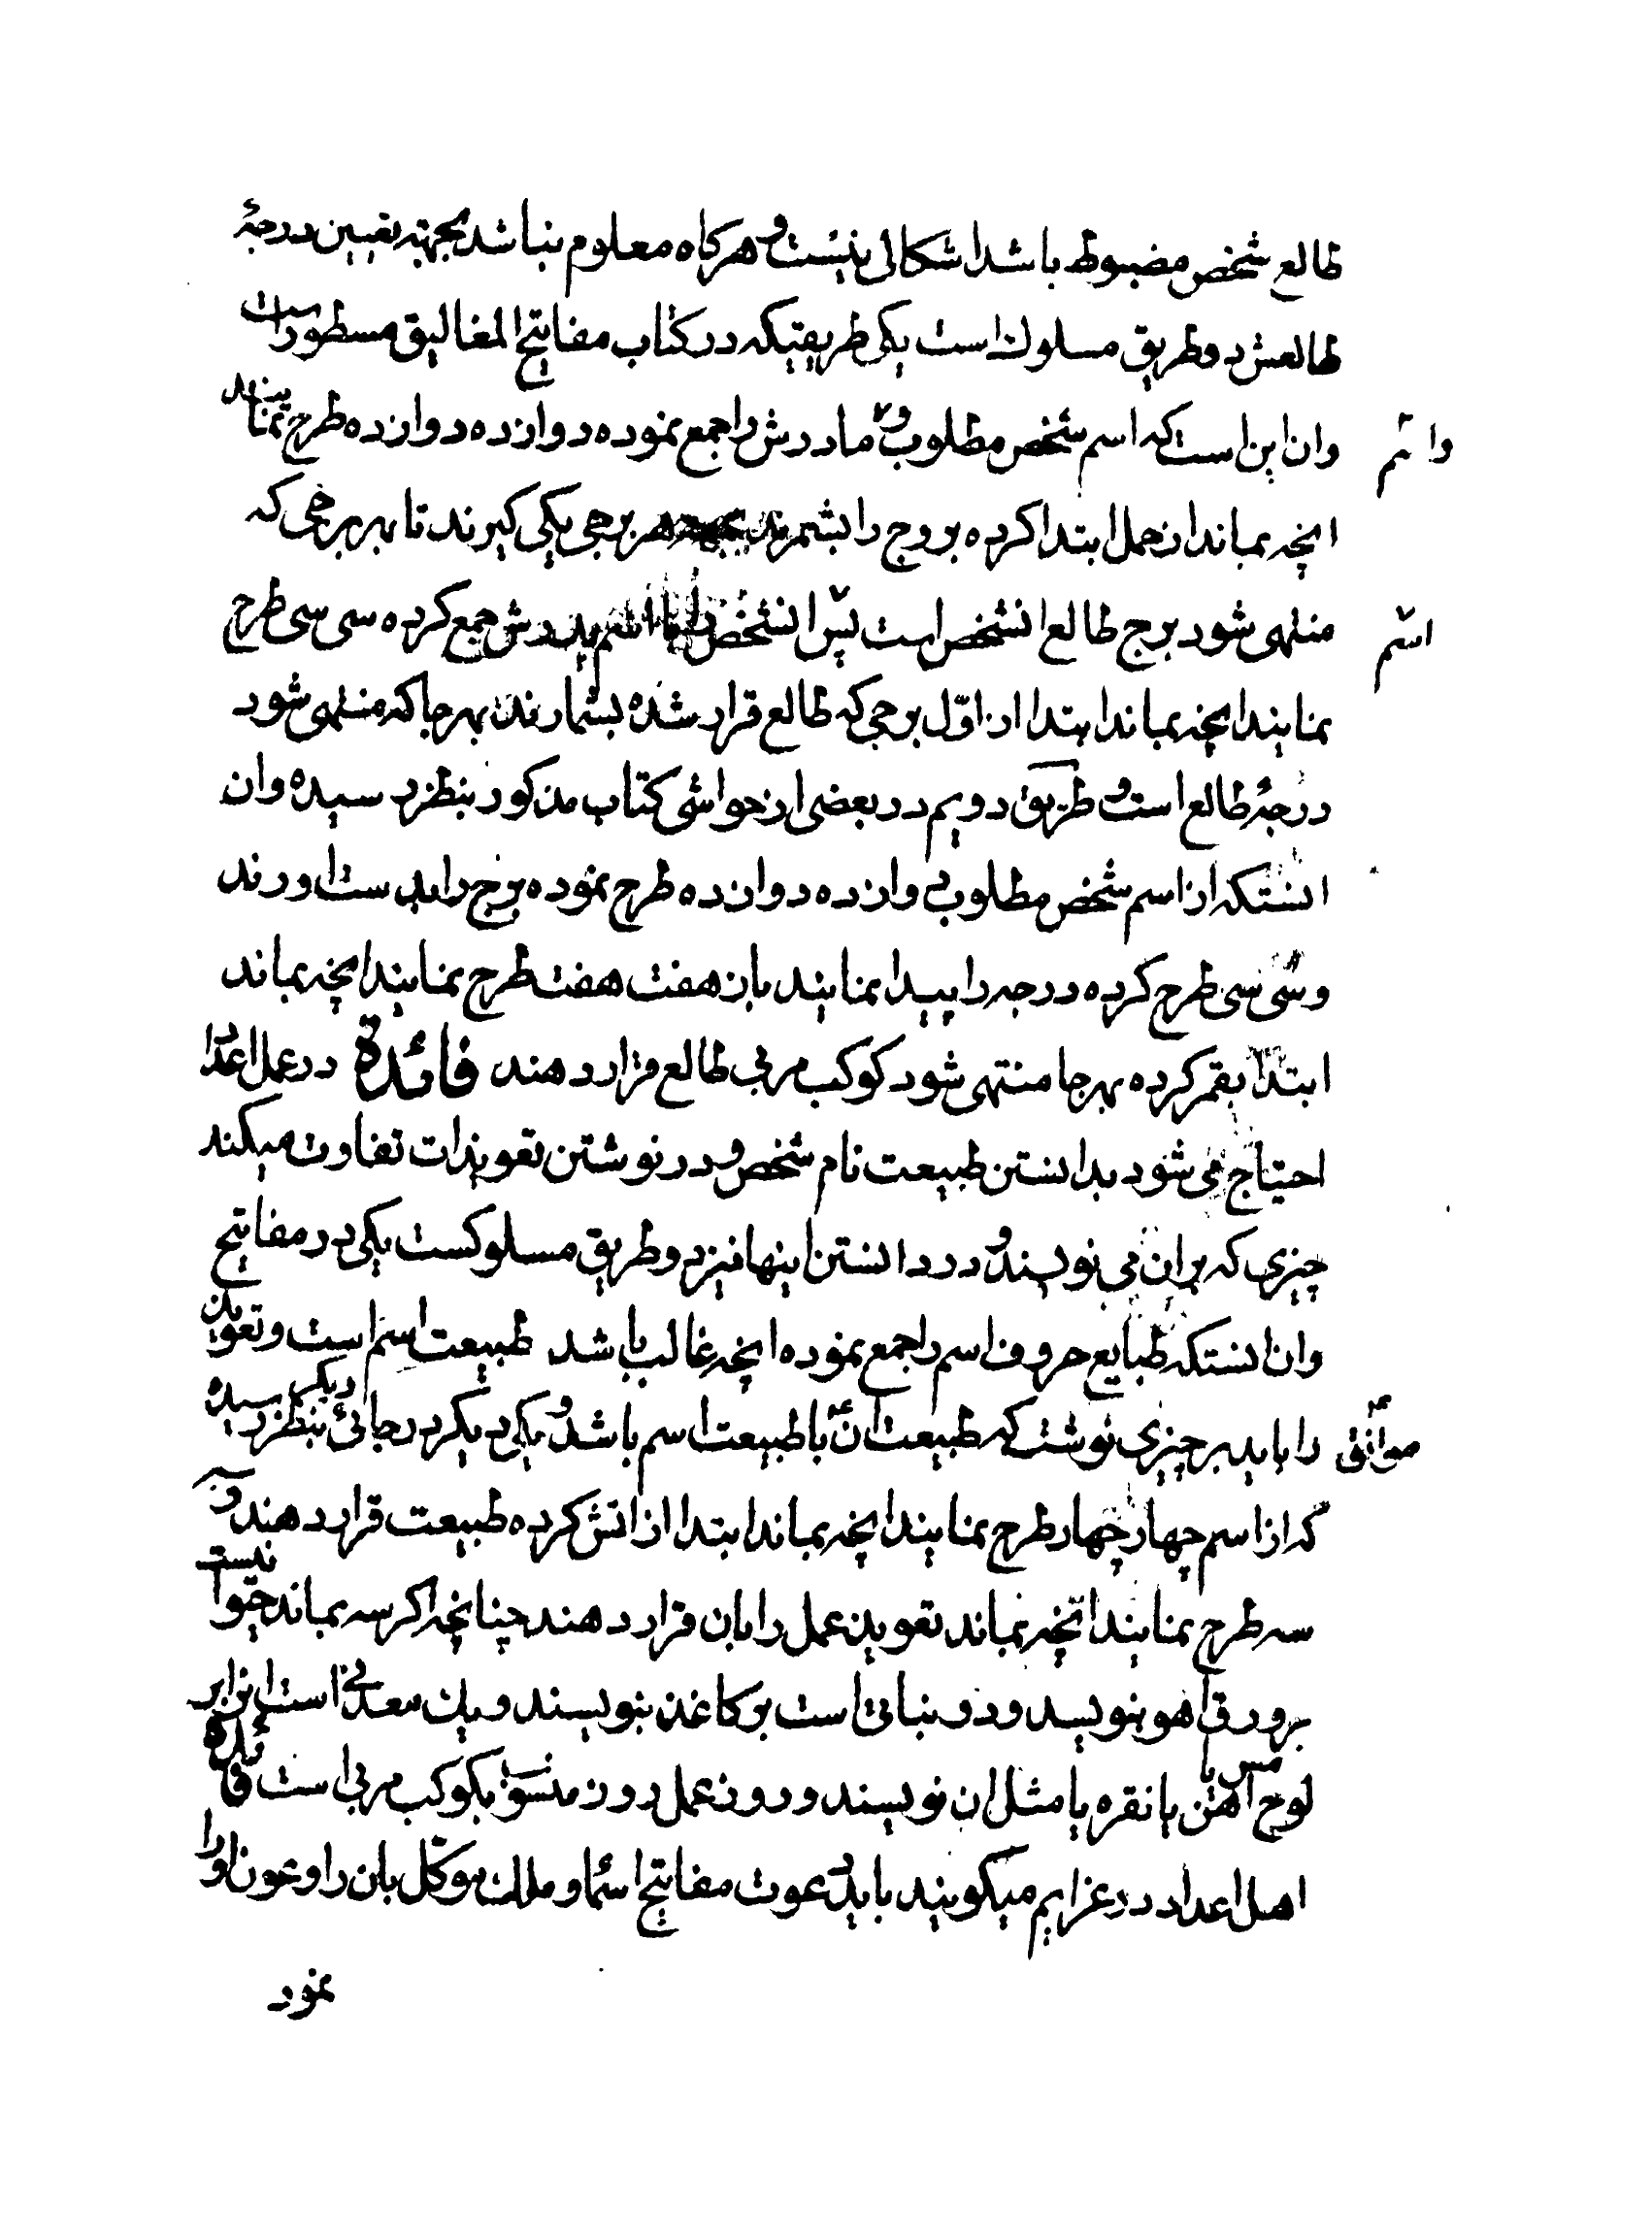 طالع شخص مضبوط باشد اشکالی نیست و هرکاه معلوم نباشد بجهته تعیین درجهٔ
طالعش دو طریق مسلوک است یکی طریقیکه در کتاب مفاتیح المغالیق مسطور است
وان این است که اسم شخص مطلوب و مادرش را جمع نموده دوازده دوازده طرح نمایند
واسم
انچه بماند از حمل ابتدا کرده بروج را بشمرند هر برجی یکی کیرند تا بهر برجی که
منتهی شود برج طالع انشخص است پس انشخص را با اسم پدرش جمع کرده سی سی طرح
اسم
نمایند انچه بماند ابتدا از اوّل برجی که طالع قرار شده بشمارند بهر جا که منتهی شود
درجهٔ طالع است و طریق دویم در بعضی از حواشی کتاب مذکور بنظر رسیده وان
انستکه از اسم شخص مطلوب دوازده دوازده طرح نموده برج را بدست اورند
و سی سی طرح کرده درجه را پیدا نمایند باز هفت هفت طرح نمایند انچه بماند
ابتدا بقمر کرده بهر جا منتهی شود کوکب مربی طالع قرار دهند فائدة در عمل اعداد
احتیاج می شود بدانستن طبیعت نام شخص و در نوشتن تعویذات تفاوت میکند
چیزی که بران می نویسند و در دانستن اینها نیز دو طریق مسلوکست یکی در مفاتیح
وان انستکه طبایع حروف اسم را جمع نموده انچه غالب باشد طبیعت اسم است و تعویذ
را باید بر چیزی نوشت که طبیعت ان با طبیعت اسم باشد و یکی دیکر در جائی دیکر بنظر رسیده
موافق
که از اسم چهار چهار طرح نمایند انچه بماند ابتدا از اتش کرده طبیعت قرار دهند و سه
سه طرح نمایند انچه بماند تعویذ عمل را بان قرار دهند چنانچه اکر سه بماند حیوانیست
بر ورق اهو بنویسد و دو نباتی است بر کاغذ بنویسند و یک معدنی است انرا بر
لوح اهن یا مس یا نقره یا مثل ان نویسند و روز عمل روز منسوب بکوکب مربی است فائده
اهل اعداد در عزایم میکویند باید دعوت مفاتیح اسما و ملک موکّل بان را و عون او را
نمود